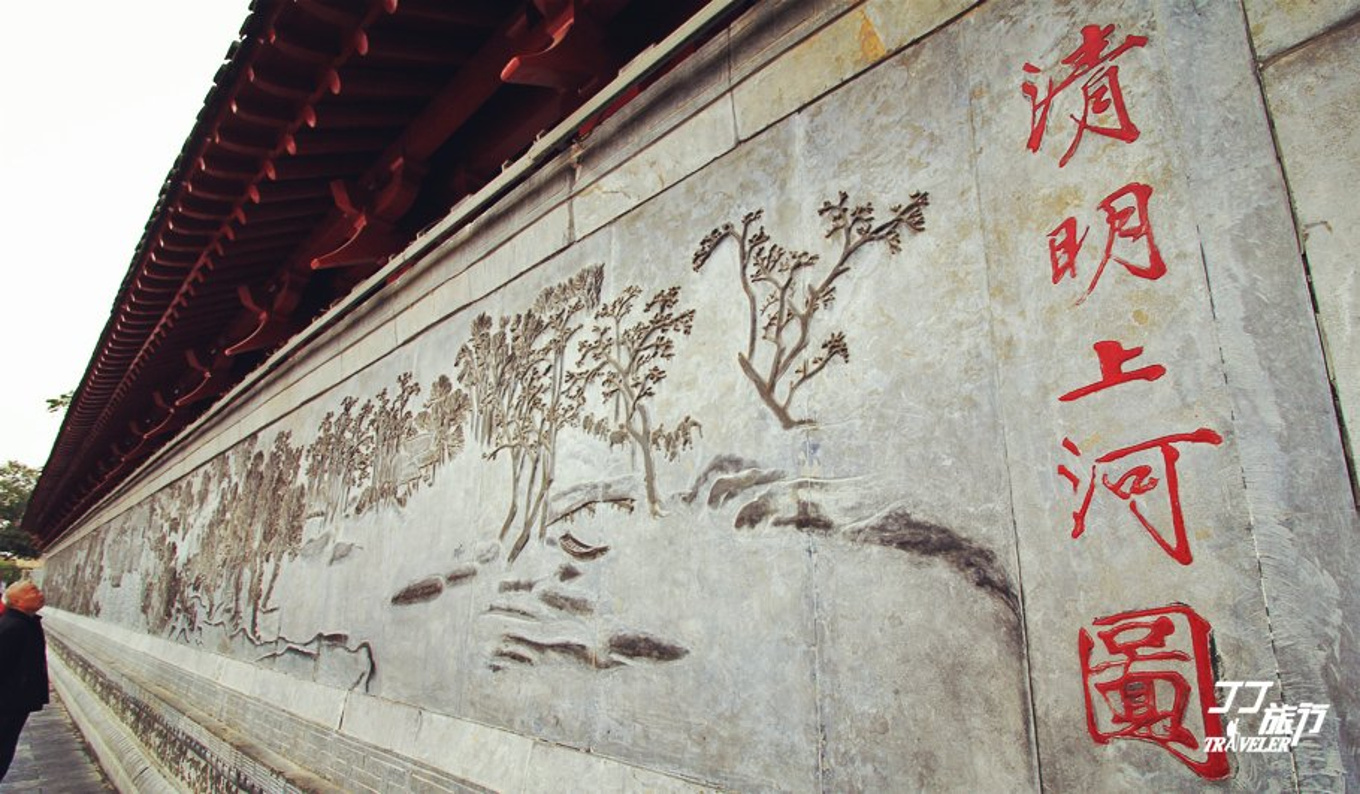 清明上河圖
丁丁旅行
TRAVELER